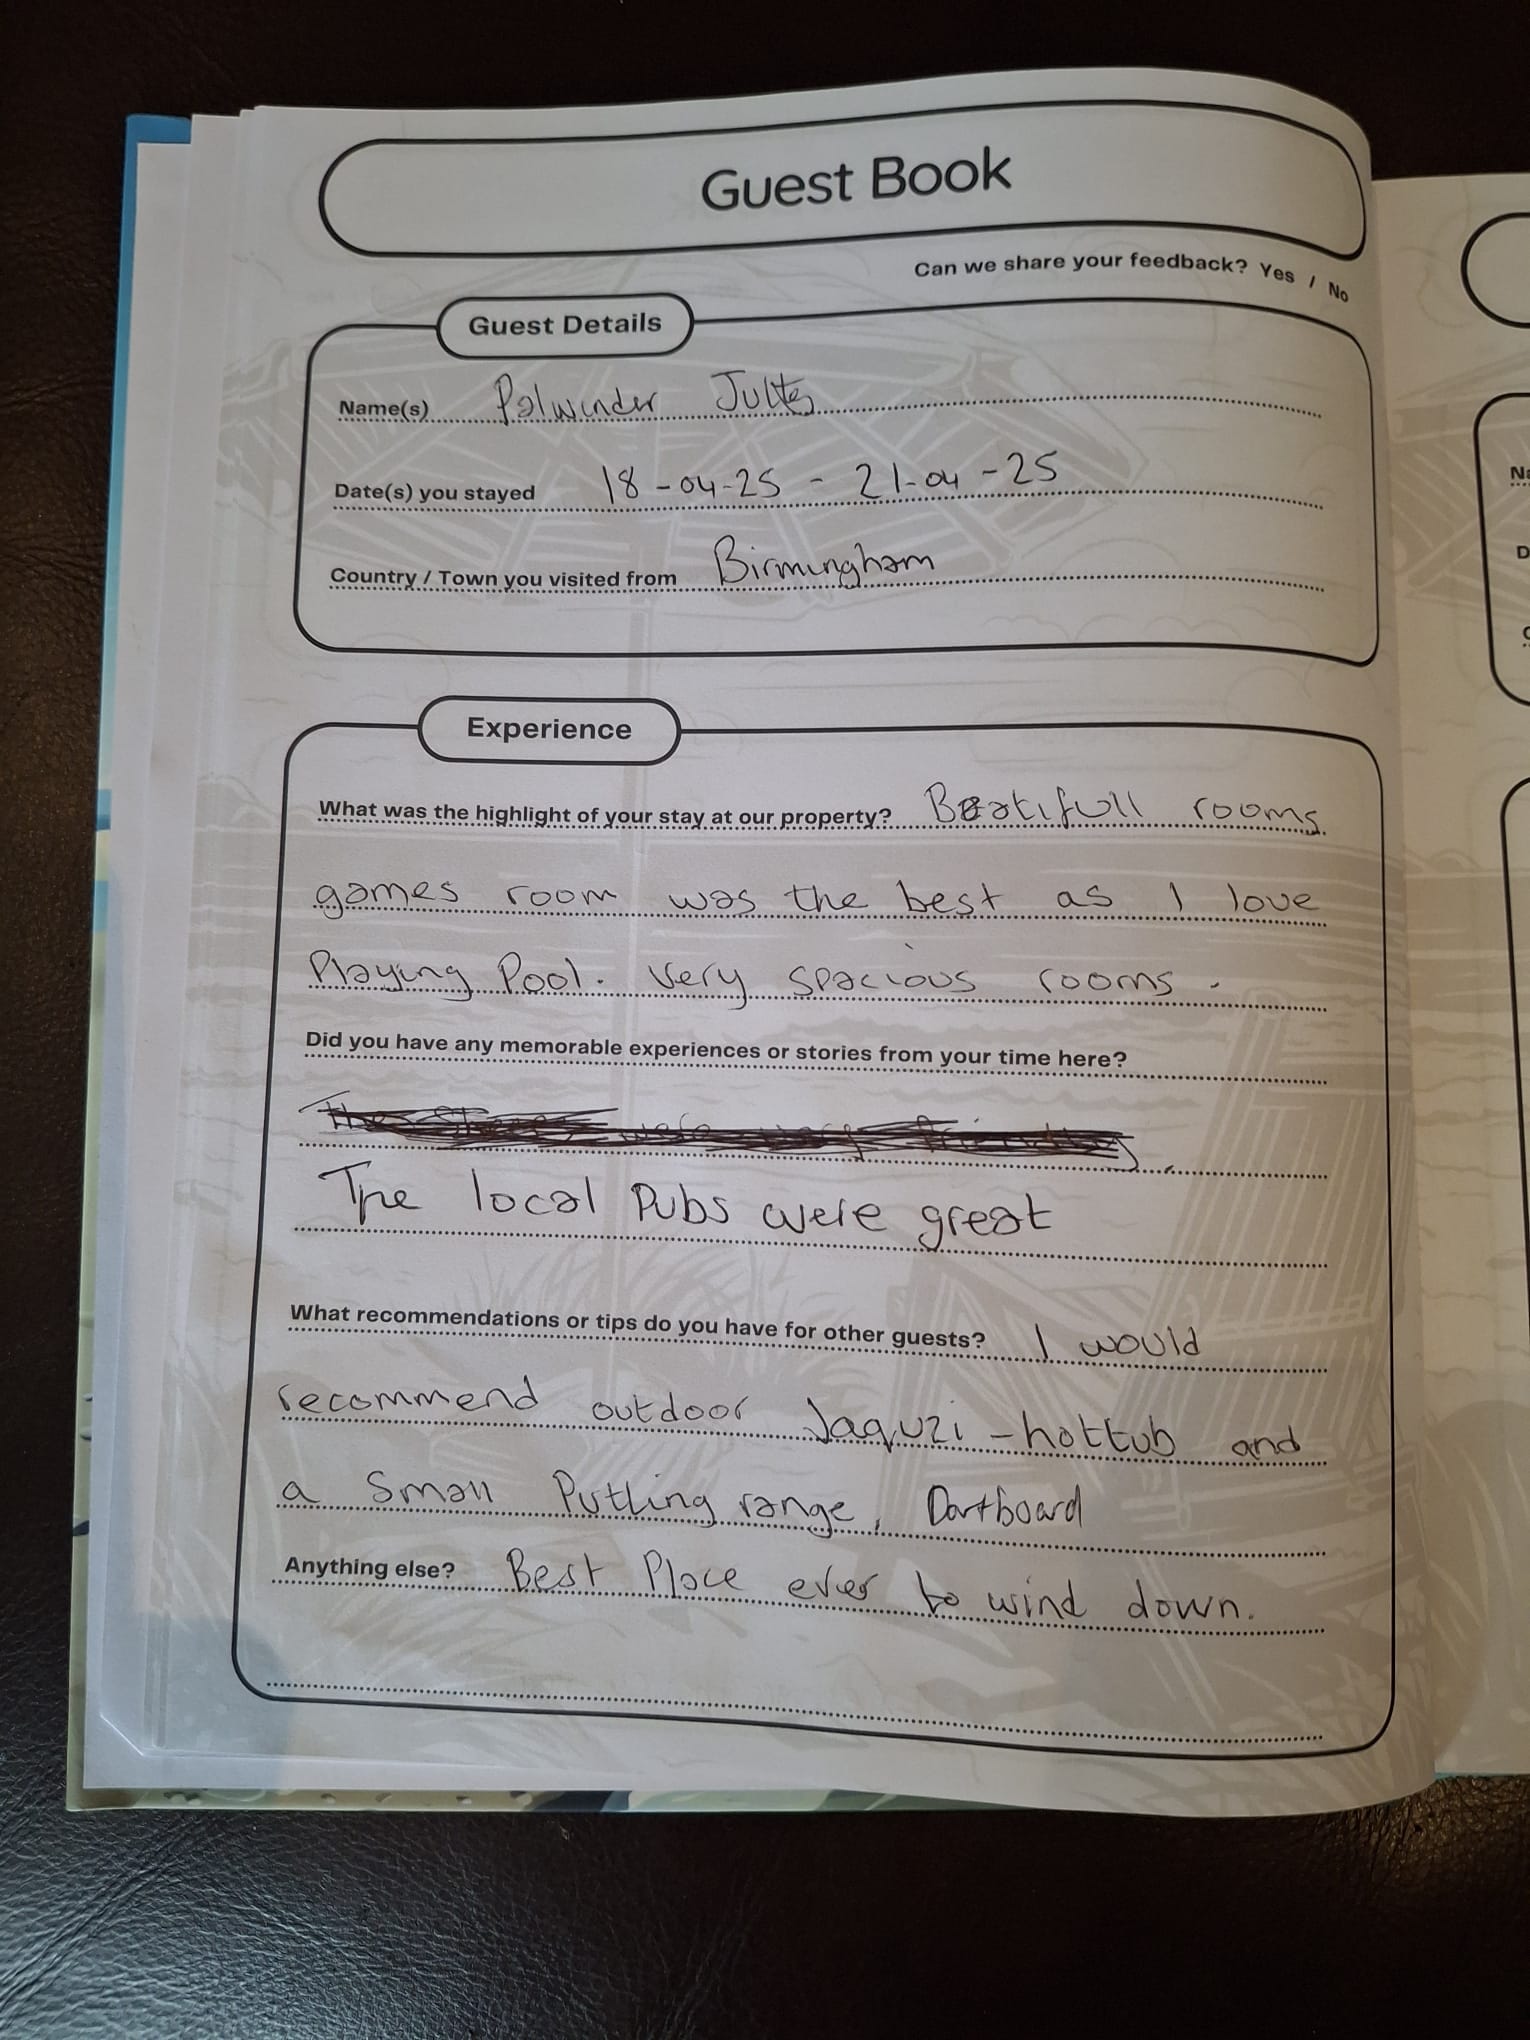 Guest Book
Can we share your feedback? Yes / No
Guest Details
Name(s) Palwinder
Date(s) you stayed 18-04-25 - 21-04-25
Country / Town you visited from Birmingham
Experience
What was the highlight of your stay at our property? Beatifull rooms
games room was the best as I love
Playing Pool. Very spacious rooms.
Did you have any memorable experiences or stories from your time here?
The local Pubs were great
What recommendations or tips do you have for other guests? I would
recommend outdoor Jaquzi - hottub and
a small Putting range, Dartboard
Anything else? Best Place ever to wind down.